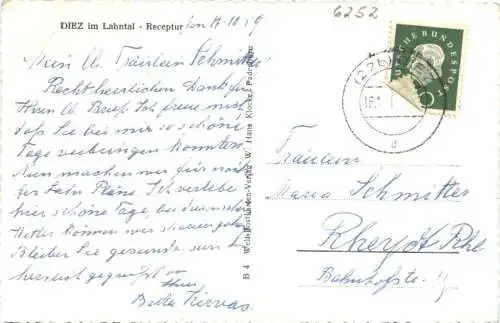 DIEZ im Lahntal - Receptur
6252
Mein lb. Fräulein Schmitter
Recht herzlichen Dank für
Ihren lb. Brief. Ich freue mich
daß Sie bei mir so schöne
Tage verbringen konnten.
Nun machen wir für
Pläne. Ich verlebe
hier schöne Tage, bei
Wetter können wir
Bleiben Sie gesund u.
herzlichst gegrüßt von
Ihrer
B 4 Welt-Postkarten-Verlag W. Hans Klocke, Paderborn
DEUTSCHE BUNDESPOST
(22b)
d
Fräulein
Maria Schmitter
Rheydt Rhld
Bahnhofstr.